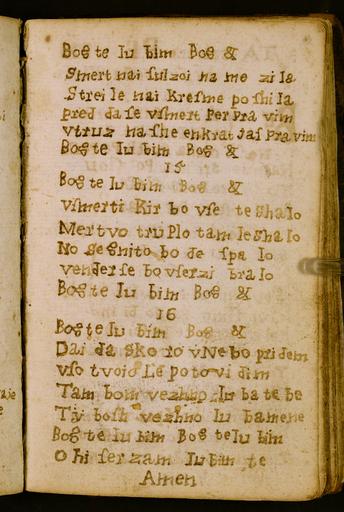 Bog te lu bim Bog &
Smert nai sulzoi na me zila
Strei le nai Kresme po shi la
pred da se vsmert per pra vim
vtruz na she enkrat jas pravim
Bog te lu bim Bog &
15
Bog te lu bim Bog &
vsmerti Kir bo vse te shalo
Mertvo truplo tam leshalo
No gegnito bo de spa lo
vender se bo vserzi bralo
Bog te lu bim Bog &
16
Bog te lu bim Bog &
Dai da sko ro v Nebo pridem
vso tvoio Le po to vi dim
Tam bom vezhno lu ba te be
Ti bosh vezhno lu bamene
Bog te lu bim Bog te lu bim
O hi ser zam lubim te
Amen